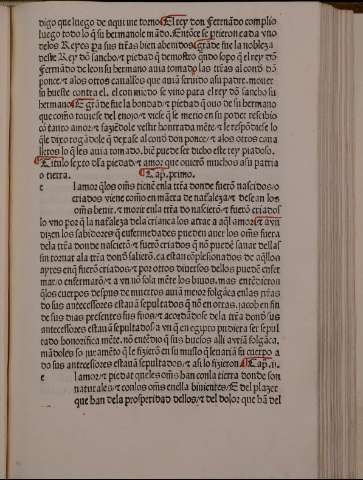 digo que luego de aqui me torno El rey don Fernãdo complio
luego todo lo q̃ su hermano le mãdo. Entõce se ptieron cada vno
delos Reyes pa sus tr̃as bien abenidos grãde fue la nobleza
deste Rey dõ sancho/⁊ piedad q̃ demostro q̃ndo sopo q̃ el rey dõ
Fernãdo de leon su hermano auia tomado las tr̃as al cond dõ
ponce/⁊ alos otros caualleos que auiã seruido a su padre. mouer
su hueste contra el. ⁊ con miedo se vino para el rey dõ sancho su
hermano E grãde fue la bondad/⁊ piedad q̃ ouo de su hermano
que como touiese del enojo/⁊ viese q̃ se metio en su poder rescibio
cõ tanto amor/⁊ fayẽdole vestir honrada mẽte/⁊ le respõdiese lo
q̃le dixo rogãdole q̃ dexase al cond don ponce/⁊ alos otros caua
lleros lo q̃ les auia tomado. biẽ puede ser dicho este rey piadoso.
Titulo sexto dla piedad/⁊ amor que ouierõ muchos a su patria
o tierra. Cap. primo.
e l amor q̃los om̃s tienẽ enla tr̃a donde fuerõ nascidos/o
criados viene como en mãera de naͭaleza/⁊ desean los
om̃s beuir. ⁊ morir enla tr̃a do nasciẽrõ/⁊ fuerõ criados
lo vno por q̃ la naͭaleza dela criança los atrae a aq̃l amor/⁊ avn
dizen los sabidores q̃ enfermedades pueden auer los om̃s fuera
dela tr̃a donde nasciẽrõ/⁊ fuerõ criados q̃ nõ puedẽ sanar dellas
sin tornar ala tr̃a donđ salierõ. ca estan cõplesionados de aq̃llos
ayres enq̃ fuerõ criados/⁊ por otros diuersos dellos puedẽ enfer
mar/o enfermarõ/⁊ a vn no sola mẽte los biuos. mas entẽdieron
q̃los cuerpos despues de muertos auiã meior folgãça enlas tr̃as
do sus antecessores estauã sepultados q̃ nõ en otras. jacob en fin
de sus dias presentes sus fijos/⁊ acordãdose dela tr̃a donđ sus
antecessores estauã sepultados a vn q̃ en egipto pudiera ser sepul
tado honorifica mẽte. nõ entẽdio q̃ sus huesos alli auriã folgãça.
mãdoles so juramẽto q̃ le fiziesẽ en su muslo q̃ leuariã su cuerpo a
do sus antecessores estauã sepultados/⁊ asi lo fizieron Cap. ii.
e l amor/⁊ piedat que los om̃s han con la tierra donde son
naturales/⁊ con los om̃s enella biuientes/E del plazer
que han dela prosperidad dellos/⁊ del dolor que hã del